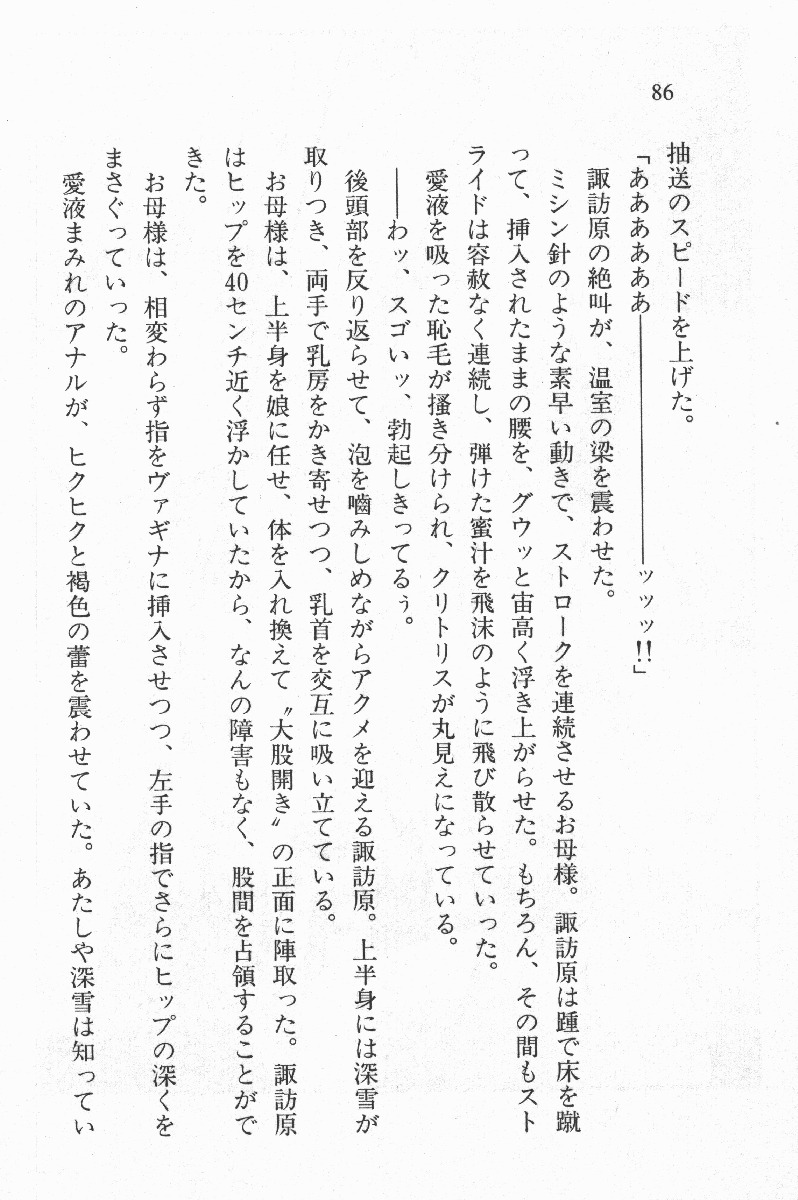 86
抽送のスピードを上げた。
「ああああああ――――――――ッッッ!!」
諏訪原の絶叫が、温室の梁を震わせた。
ミシン針のような素早い動きで、ストロークを連続させるお母様。諏訪原は踵で床を蹴
って、挿入されたままの腰を、グウッと宙高く浮き上がらせた。もちろん、その間もスト
ライドは容赦なく連続し、弾けた蜜汁を飛沫のように飛び散らせていった。
愛液を吸った恥毛が掻き分けられ、クリトリスが丸見えになっている。
――わッ、スゴいッ、勃起しきってるぅ。
後頭部を反り返らせて、泡を噛みしめながらアクメを迎える諏訪原。上半身には深雪が
取りつき、両手で乳房をかき寄せつつ、乳首を交互に吸い立てている。
お母様は、上半身を娘に任せ、体を入れ換えて〝大股開き〟の正面に陣取った。諏訪原
はヒップを40センチ近く浮かしていたから、なんの障害もなく、股間を占領することがで
きた。
お母様は、相変わらず指をヴァギナに挿入させつつ、左手の指でさらにヒップの深くを
まさぐっていった。
愛液まみれのアナルが、ヒクヒクと褐色の蕾を震わせていた。あたしや深雪は知ってい